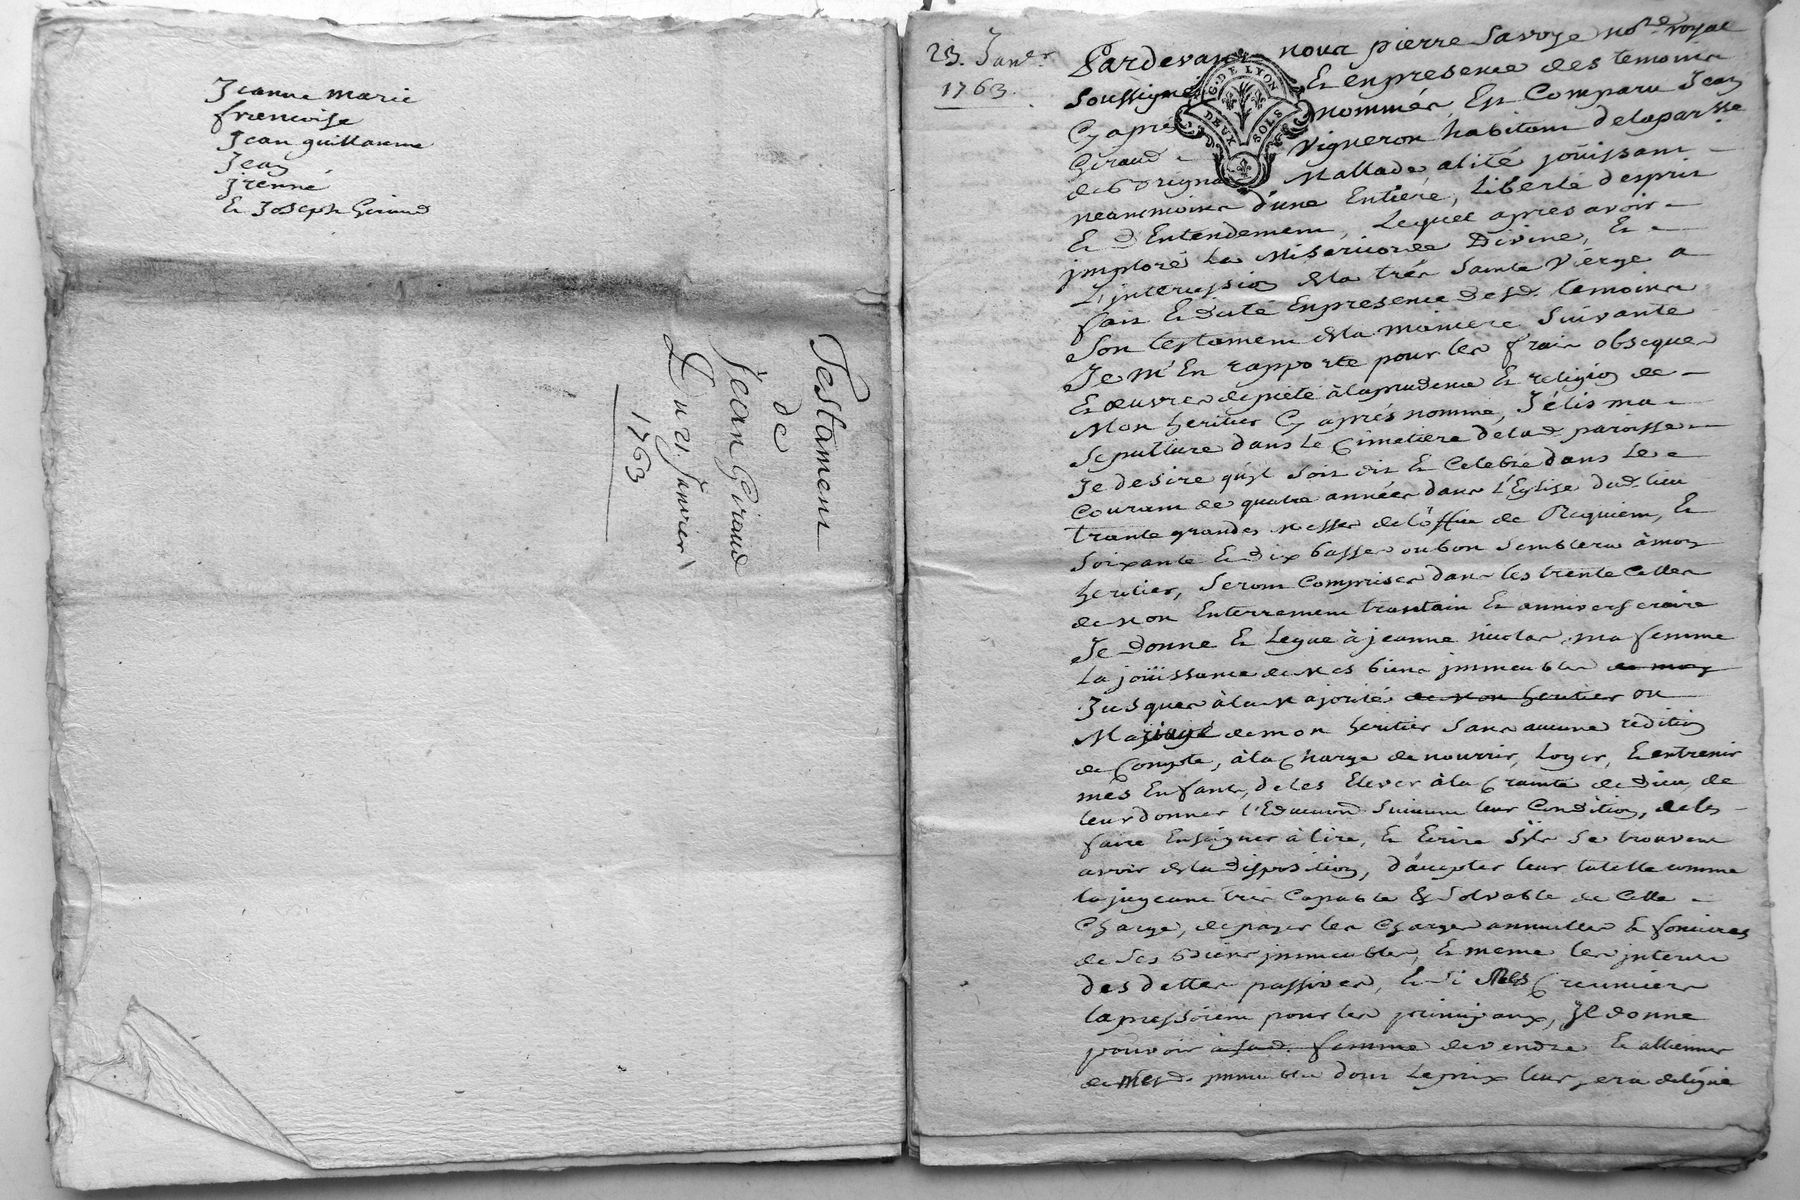 Jeanne marie
francoise
Jean guillaume
Jean
jrenné
Et Joseph Giraud
Testament
de
Jean Giraud
Du 23. Janvier
1763
23. Janer
1763.
Pardevant nour pierre Savoye nore royal
Soussigné Et en presence des temoins
Cy apres nommés, Est Comparu Jean
Giraud vigneron habitant de la parsse
de Brignais Mallade alité joüissant
neanmoins d'une Entiere, Liberté d'esprit
Et d'Entendement, Lequel apres avoir
jmploré La Misericorde Divine, Et
L'jntercession de la trés Sainte Vierge a
fait Et dicté En presence desd. temoins
Son testament de la maniere Suivante
Je m'En rapporte pour les frais obseques
Et œuvres de pieté à la prudence Et religion de
Mon heritier Cy apres nommé, J'élis ma
Sepulture dans le Cimetiere de lad. paroisse
Je desire qu'jl soit dit Et Celebré dans Le
Courant de quatre années dans l'Eglise dud. lieu
trante grandes Messes de l'office de Requiem, Et
Soixante Et dix basses ou bon Semblera à mon
heritier, Seront Comprises dans les trente Celles
de Mon Enterrement trantain Et anniversaire
Je donne Et Legue à jeanne nicolas ma femme
La joüissance de Mes biens jmmeubles de mon
Jusques à la Majorité de Mon heritier ou
Mariage de mon heritier Sans aucune redition
de Compte, à la Charge de nourrir, Loger, Et entretenir
mes Enfants, de les Elever à la Crainte de Dieu, de
leur donner l'Education Suivant leur Condition, de les
faire Enseigner à lire, Et Ecrire S'jls Se trouvent
avoir de la disposition, d'accepter leur tutelle comme
la jugeant trés Capable & Solvable de Cette
Charge, de payer les Charges annuelles Et foncieres
de Ses biens jmmeubles, Et meme les jnterets
des dettes passives, Et Si Mes Creanciers
la pressoient pour les principaux, jl donne
pouvoir à Sad. femme de vendre Et alliener
de Mesd. jmmeubles dont Le prix leur sera delegué
G. DE LYON
DEUX SOLS